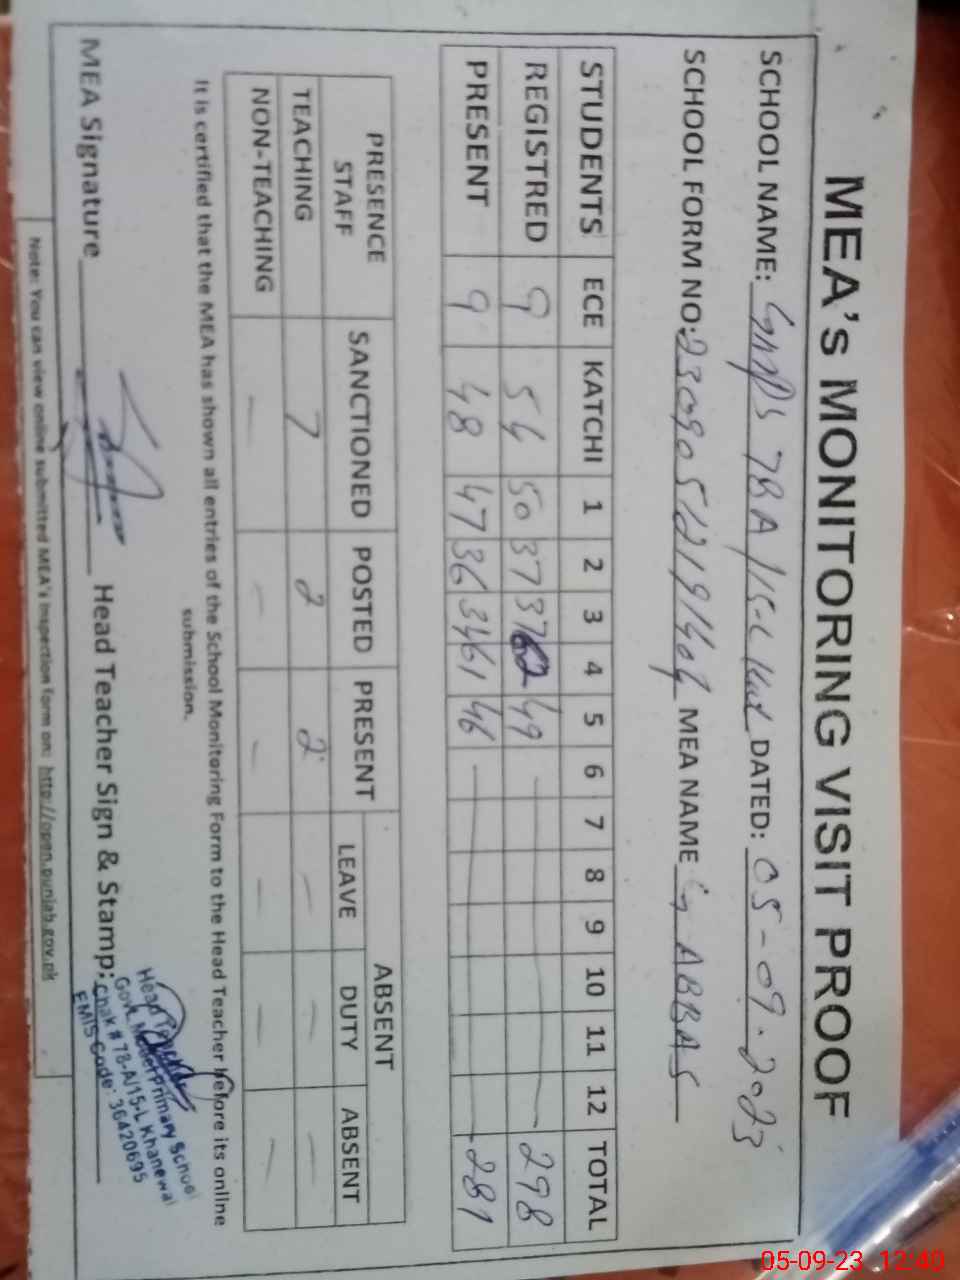 MEA'S MONITORING VISIT PROOF
SCHOOL NAME: GMPS 78A/15-L Kwl DATED: 05-09-2023
SCHOOL FORM NO: MEA NAME ABBAS
STUDENTS ECE KATCHI 1 2 3 4 5 6 7 8 9 10 11 12 TOTAL
REGISTRED 9 54 50 37 37 62 49 298
PRESENT 9 48 47 36 34 61 46 281
PRESENCE STAFF SANCTIONED POSTED PRESENT ABSENT
LEAVE DUTY ABSENT
TEACHING 7 2 2 — — —
NON-TEACHING — — — — — —
It is certified that the MEA has shown all entries of the School Monitoring Form to the Head Teacher before its online
submission.
MEA Signature Head Teacher Sign & Stamp:
Head Teacher
Govt. Model Primary School
Chak # 78-A/15-L Khanewal
EMIS Code: 36420695
Note: You can view online submitted MEA's inspection form on: http://open.punjab.gov.pk
05-09-23 12:40